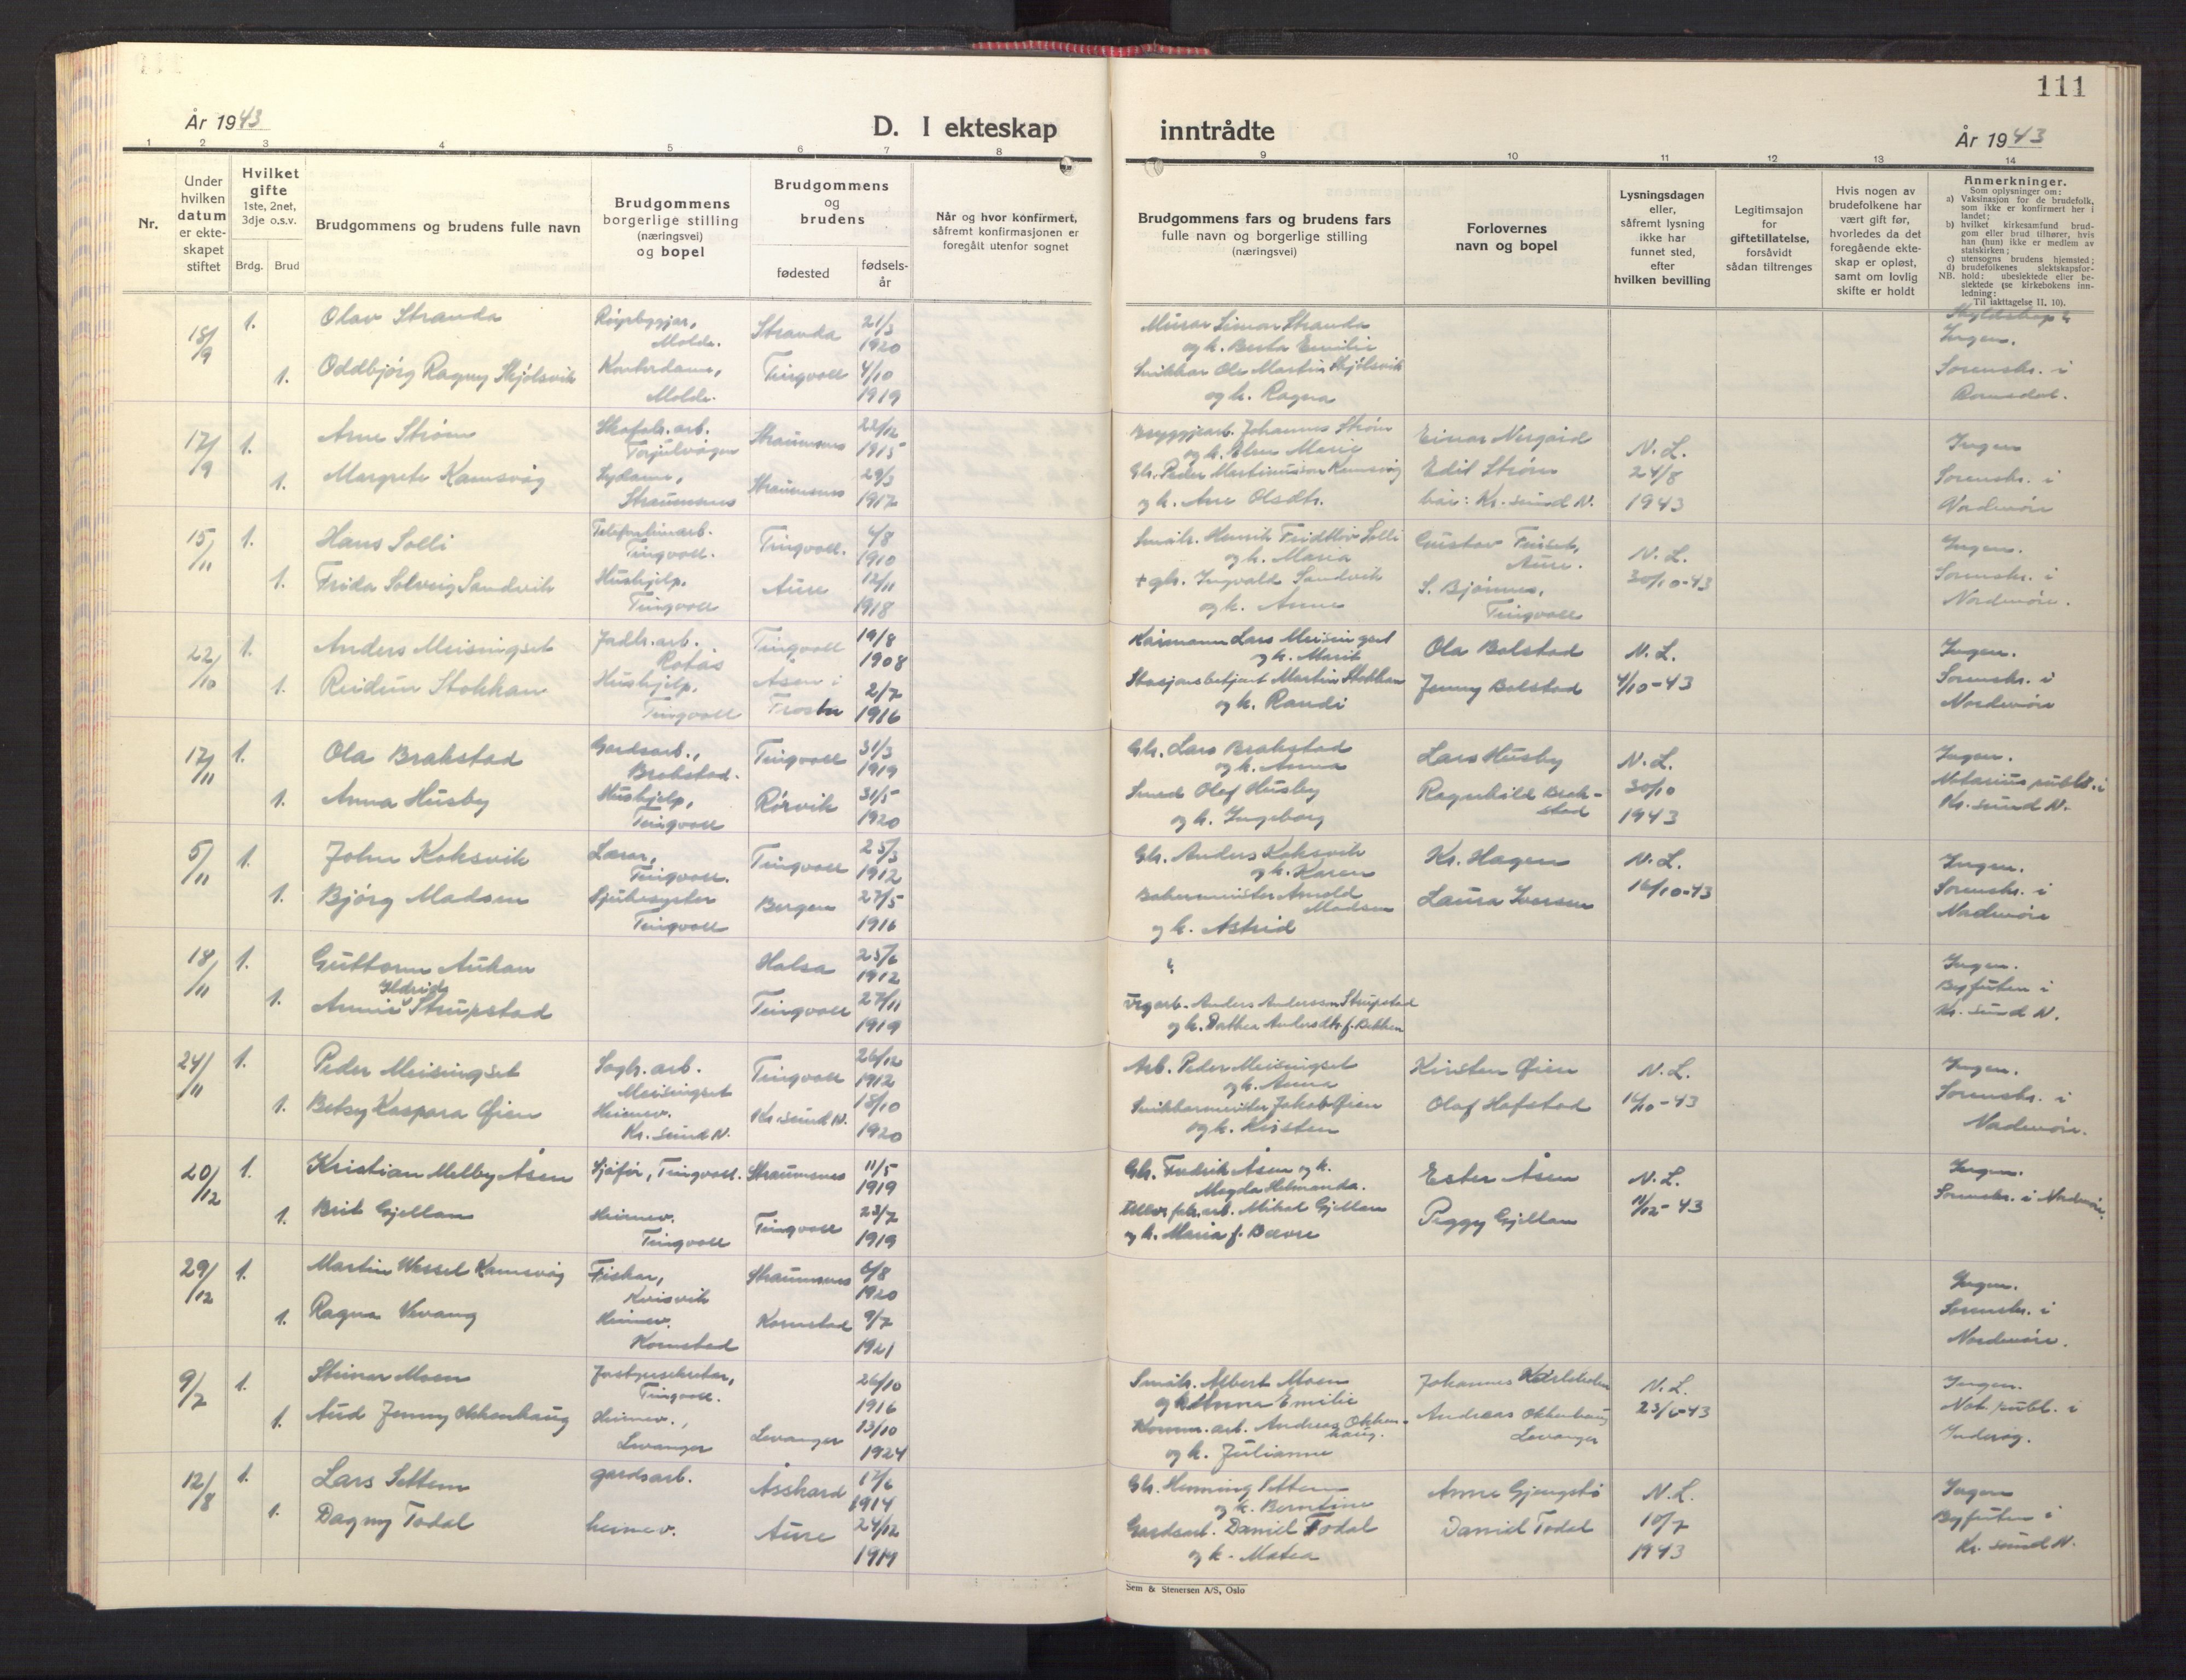 111
År 1943
D. I ekteskap
inntrådte
År 1943
1 2 3 4 5 6 7 8 9 10 11 12 13 14
Nr.
Under
hvilken
datum
er ekte-
skapet
stiftet
Hvilket
gifte
1ste, 2net,
3dje o.s.v.
Brdg. Brud
Brudgommens og brudens fulle navn
Brudgommens
borgerlige stilling
(næringsvei)
og bopel
Brudgommens
og
brudens
fødested
fødsels-
år
Når og hvor konfirmert,
såfremt konfirmasjonen er
foregått utenfor sognet
Brudgommens fars og brudens fars
fulle navn og borgerlige stilling
(næringsvei)
Forlovernes
navn og bopel
Lysningsdagen
eller,
såfremt lysning
ikke har
funnet sted,
efter
hvilken bevilling
Legitimsajon
for
giftetillatelse,
forsåvidt
sådan tiltrenges
Hvis nogen av
brudefolkene har
vært gift før,
hvorledes da det
foregående ekte-
skap er opløst,
samt om lovlig
skifte er holdt
Anmerkninger.
Som oplysninger om:
a) Vaksinasjon for de brudefolk,
som ikke er konfirmert her i
landet;
b) hvilket kirkesamfund brud-
gom eller brud tilhører, hvis
han (hun) ikke er medlem av
statskirken;
c) utensogns brudens hjemsted;
d) brudefolkenes slektskapsfor-
NB. hold: ubeslektede eller be-
slektede (se kirkebokens inn-
ledning:
Til iakttagelse II, 10).
18/9 1. Olav Stranda Molde. Stranda 21/3 1920 Murar Simon Stranda og k. Berta Emilie Ingen.
1. Oddbjørg Ragny Skjølsvik Kontordame, Molde. Tingvoll 4/10 1919 Snikkar Ole Martin Skjølsvik og k. Ragna Sorenskr. i Romsdal.
17/9 1. Arne Strøm Skofabr. arb. Torjulvågen Straumsnes 22/12 1915 Bryggjearb. Johannes Strøm og k. Elen Marie Einar Nergård N. L. Ingen
1. Margrete Kamsvåg Sydame, Straumsnes Straumsnes 29/3 1917 Gbr. Peder Martinusson Kamsvåg og k. Ane Olsdtr. Edit Strøm bæ: Kr. sund N. 24/8 1943 Sorenskr. i Nordmøre
15/11 1. Hans Solli Telefonlinearb. Tingvoll. Tingvoll. 4/8 1910 Småbr. Henrik Fridtlov Solli og k. Maria Gustav Aure. N. L. Ingen.
1. Frida Solveig Sandvik Hushjelp, Tingvoll Aure 12/11 1918 + gbr. Ingvald Sandvik og k. Anne S. Bjørnnes, Tingvoll 30/10-43 Sorenskr. i Nordmøre.
22/10 1. Anders Meisingset Rotås Tingvoll 19/8 1908 Kårmann Lars Meisingset og k. Marit Ola Bolstad N. L. Ingen.
1. Reidun Stokkan Hushjelp, Tingvoll Åsen i Frosta 2/7 1916 Stasjonsbetjent Martin Stokkan og k. Randi Jenny Bolstad 4/10-43 Sorenskr. i Nordmøre
17/11 1. Ola Brakstad Gardsarb., Brakstad. Tingvoll 31/3 1919 Gbr. Lars Brakstad og k. Anna Lars Husby N. L. Ingen.
1. Anna Husby Hushjelp, Tingvoll Rørvik 31/5 1920 Smed Olaf Husby og k. Ingeborg Ragnhild Brak-stad 30/10 1943 Notarius publ. i Kr. sund N.
5/11 1. John Koksvik Lærar, Tingvoll. Tingvoll 25/3 1912 Gbr. Anders Koksvik og k. Karen Kr. Hagen N. L. Ingen.
1. Bjørg Madsen Sjukesyster Tingvoll Bergen 27/5 1916 Bakermeister Arnold Madsen og k. Astrid Laura Iversen 16/10-43 Sorenskr. i Nordmøre
18/11 1. Guttorm Aukan Halsa 25/6 1912 Ingen.
1. Annie Ildrid Strupstad Tingvoll 27/11 1919 Vegarb. Anders Anderssen Strupstad og k. Dorthea Andersdtr. f. Bekken Byfuten i Kr. sund N.
24/11 1. Peder Meisingset Sagbr. arb. Meisingset Tingvoll 26/12 1912 Arb. Peder Meisingset og k. Anna Kirsten Øien N. L. Ingen.
1. Betsy Kaspara Øien Heimev. Kr. sund N. Kr. sund N. 18/10 1920 Snikkarmeister Jakob Øien og k. Kirsten Olaf Hofstad 16/10-43 Sorenskr. i Nordmøre.
20/12 1. Kristian Melby Åsen Sjåfør, Tingvoll. Straumsnes 11/5 1919 Gbr. Fredrik Åsen og k. Magda Helmanda. Ester Åsen N. L. Ingen.
1. Brit Gjellan Heimev. Tingvoll Tingvoll 23/7 1919 Ullvfabr. arb. Mikal Gjellan og k. Maria f. Bævre Peggy Gjellan 11/12-43 Sorenskr. i Nordmøre.
29/12 1. Martin Wessel Kamsvåg Fiskar, Kvisvik Straumsnes 6/8 1920 Ingen.
1. Ragna Vevang Heimev. Kornstad Kornstad 9/7 1921 Sorenskr. i Nordmøre.
9/7 1. Steinar Moen Tingvoll. 26/10 1916 Småbr. Albert Moen og k. Anna Emilie Johannes N. L. Ingen.
1. Aud Jenny Okkenhaug Heimev., Levanger Levanger 23/10 1924 Komm. arb. Andreas Okken-haug. og k. Julianne Andreas Okkenhaug Levanger 23/6-43 Not. publ. i Inderøy.
12/8 1. Lars Settem gardsarb. Åsskard 17/6 1914 Gbr. Henning Settem og k. Berntine Anne Gjengstø N. L. Ingen
1. Dagny Todal heimev. Aure 24/12 1919 Gardsarb. Daniel Todal og k. Matea Daniel Todal 10/7 1943 Byfuten i Kr. sund N.
Sem & Stenersen A/S, Oslo